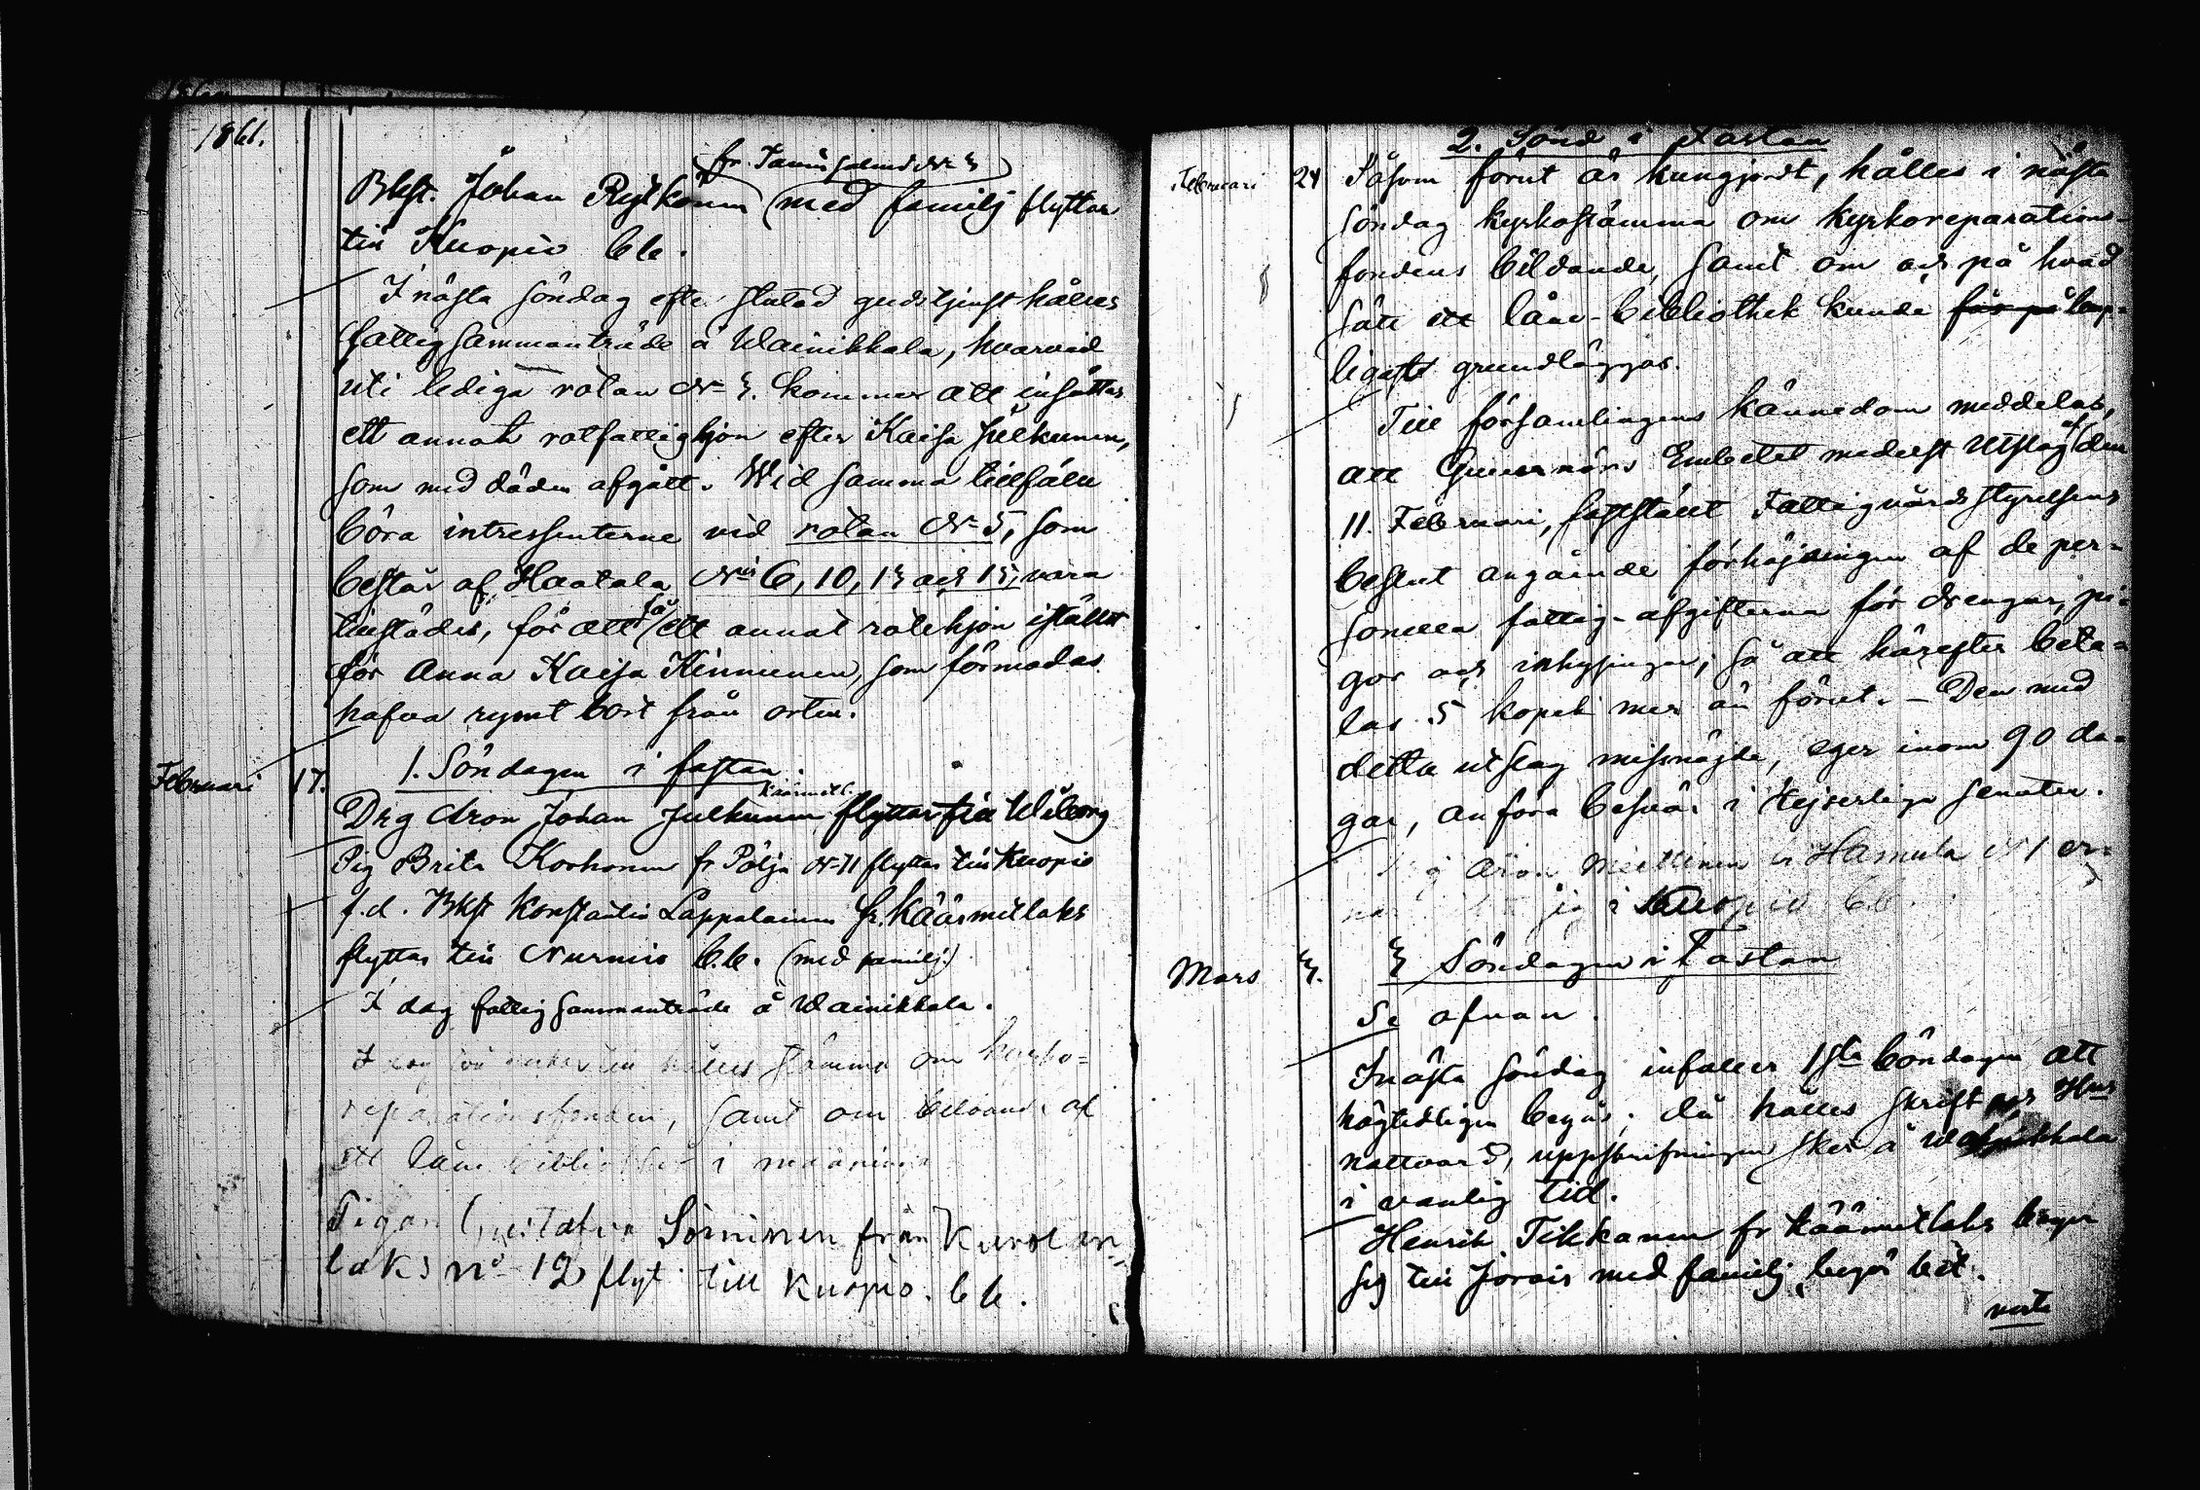 1861.
fr. Jamissalmi № 3
Bkst. Johan Rytkönen med familj flyttar
till Kuopio bb.
I nästa söndag efter slutad gudstjenst hålles
fattigsammanträde å Wainikkala, hvarvid
uti lediga rotan № 3. kommer att insättas
ett annat rotfattighjon efter Kaisa Julkunen,
som med döden afgått. Wid samma tillfälle
böra intressenterne vid rotan № 5, som
består af Haatala №is 6, 10, 13 och 15, vara
tillstädes, för att få ett annat rotehjon istället
för Anna Kaisa Kinnunen, som förmodas
hafva rymt bort från orten.
Februari 17. 1. Söndagen i fastan.
Käärmel.
Drg Aron Johan Julkunen flyttar till Wiborg
Pig Brita Korhonen fr Pöljä № 11 flyttar till Kuopio
f.d. Bkst Konstantin Lappalainen fr. Käärmelaks
flyttar till Nurmis b.b. (med familj)
I dag fattigsammanträde å Wainikkala.
I dag hålles stämma om kyrko-
reparationsfonden, samt om bildande af
ett låne bibliothek i
Pigan Gustafva Sorninen från Kurolan-
laks no 12 flyt till Kuopio. bb.
2. Sönd i Fastan
Februari 24 Såsom förut är kungjordt, hålles i nästa
söndag kyrkostämma om kyrkoreparations-
fondens bildande, samt om och på hvad
sätt ett låne-bibliothek kunde lämp-
ligast grundläggas.
Till församlingens kännedom meddelas,
att Guvernörs Embetet medelst Utslag af den
11. Februari, fastställt Fattigvårds styrelsens
beslut angående förhöjningen af de per-
sonella fattig-afgifterna för drengar, pi-
gor och inhysingar, så att härefter beta-
las 5 kopek mer än förut. - Den med
detta utslag missnöjde, eger inom 90 da-
gar, anföra besvär i Kejserliga Senaten.
Aron Miettinen fr Hamula № 1 er-
i Kuopio bb.
Mars 3. 3 Söndagen i Fastan
Se ofvan.
I nästa söndag infaller 1sta böndagen att
högtidligen begås; då hålles skrift och H
nattvard, uppskrifningen sker å Wainikkala
i vanlig tid.
Henrik Tikkanen fr Käärmelaks beger
sig till Jorois med familj, begär bet.
verte